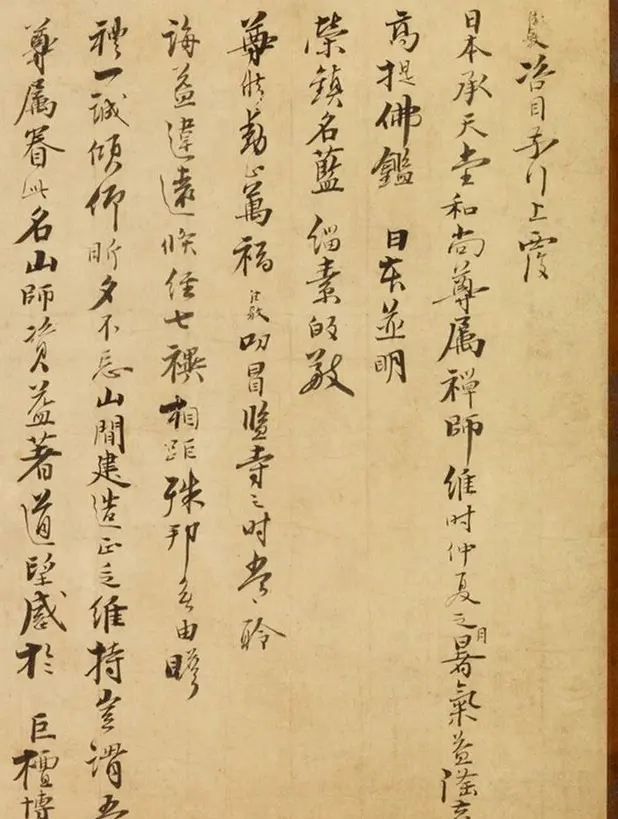 德敷咨目上覆
日本承天堂和尚尊属禅師維时仲夏之月暑氣益隆
高提佛鑑 日本並明
榮鎮名藍 緇素皈敬
尊候動止萬福德敷叨冒監寺之时嘗聆
誨益違遠倏经七禩相距殊邦無由瞻
禮一誠傾仰昕夕不忘山間建造正乏維持豈謂吾
尊属眷此名山師資益著道望感於 巨檀博